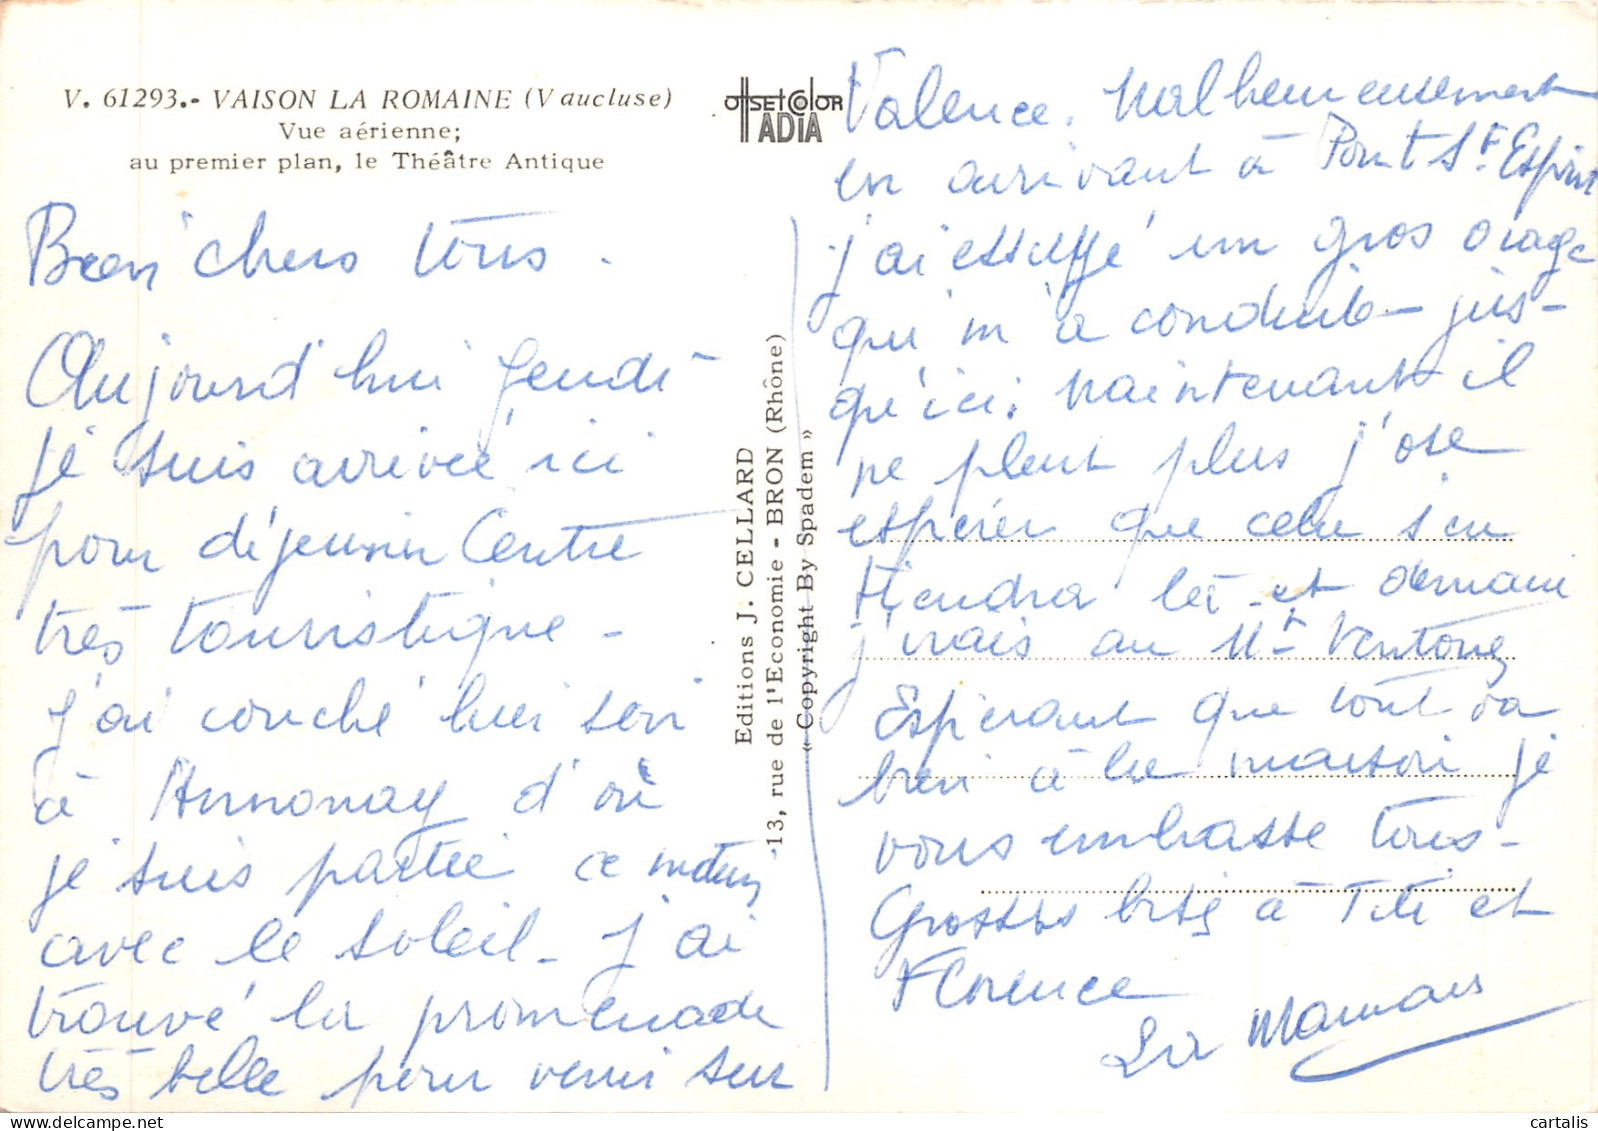 V. 61293.- VAISON LA ROMAINE (Vaucluse)
Vue aérienne;
au premier plan, le Théâtre Antique
Bien chers tous.
Aujourd'hui Jeudi
je suis arrivée ici
pour déjeuner Centre
très touristique -
j'ai couché hier soir
à Annonay d'où
je suis partie ce matin
avec le soleil - j'ai
trouvé la promenade
très belle pour venir sur
OffSETCOlOR
ADIA
Editions J. CELLARD
13, rue de l'Economie - BRON (Rhône)
« Copyright By Spadem »
Valence. Malheureusement
en arrivant à Pont St Esprit
j'ai essuyé un gros orage
qui m'a conduite jus-
qu'ici. Maintenant il
ne pleut plus j'ose
espérer que cela s'en
tiendra là - et demain
j'irais au Mt Ventoux
Espérant que tout va
bien à la maison je
vous embrasse tous -
Grosses bises à Titi et
Florence
La Maman
cartalis